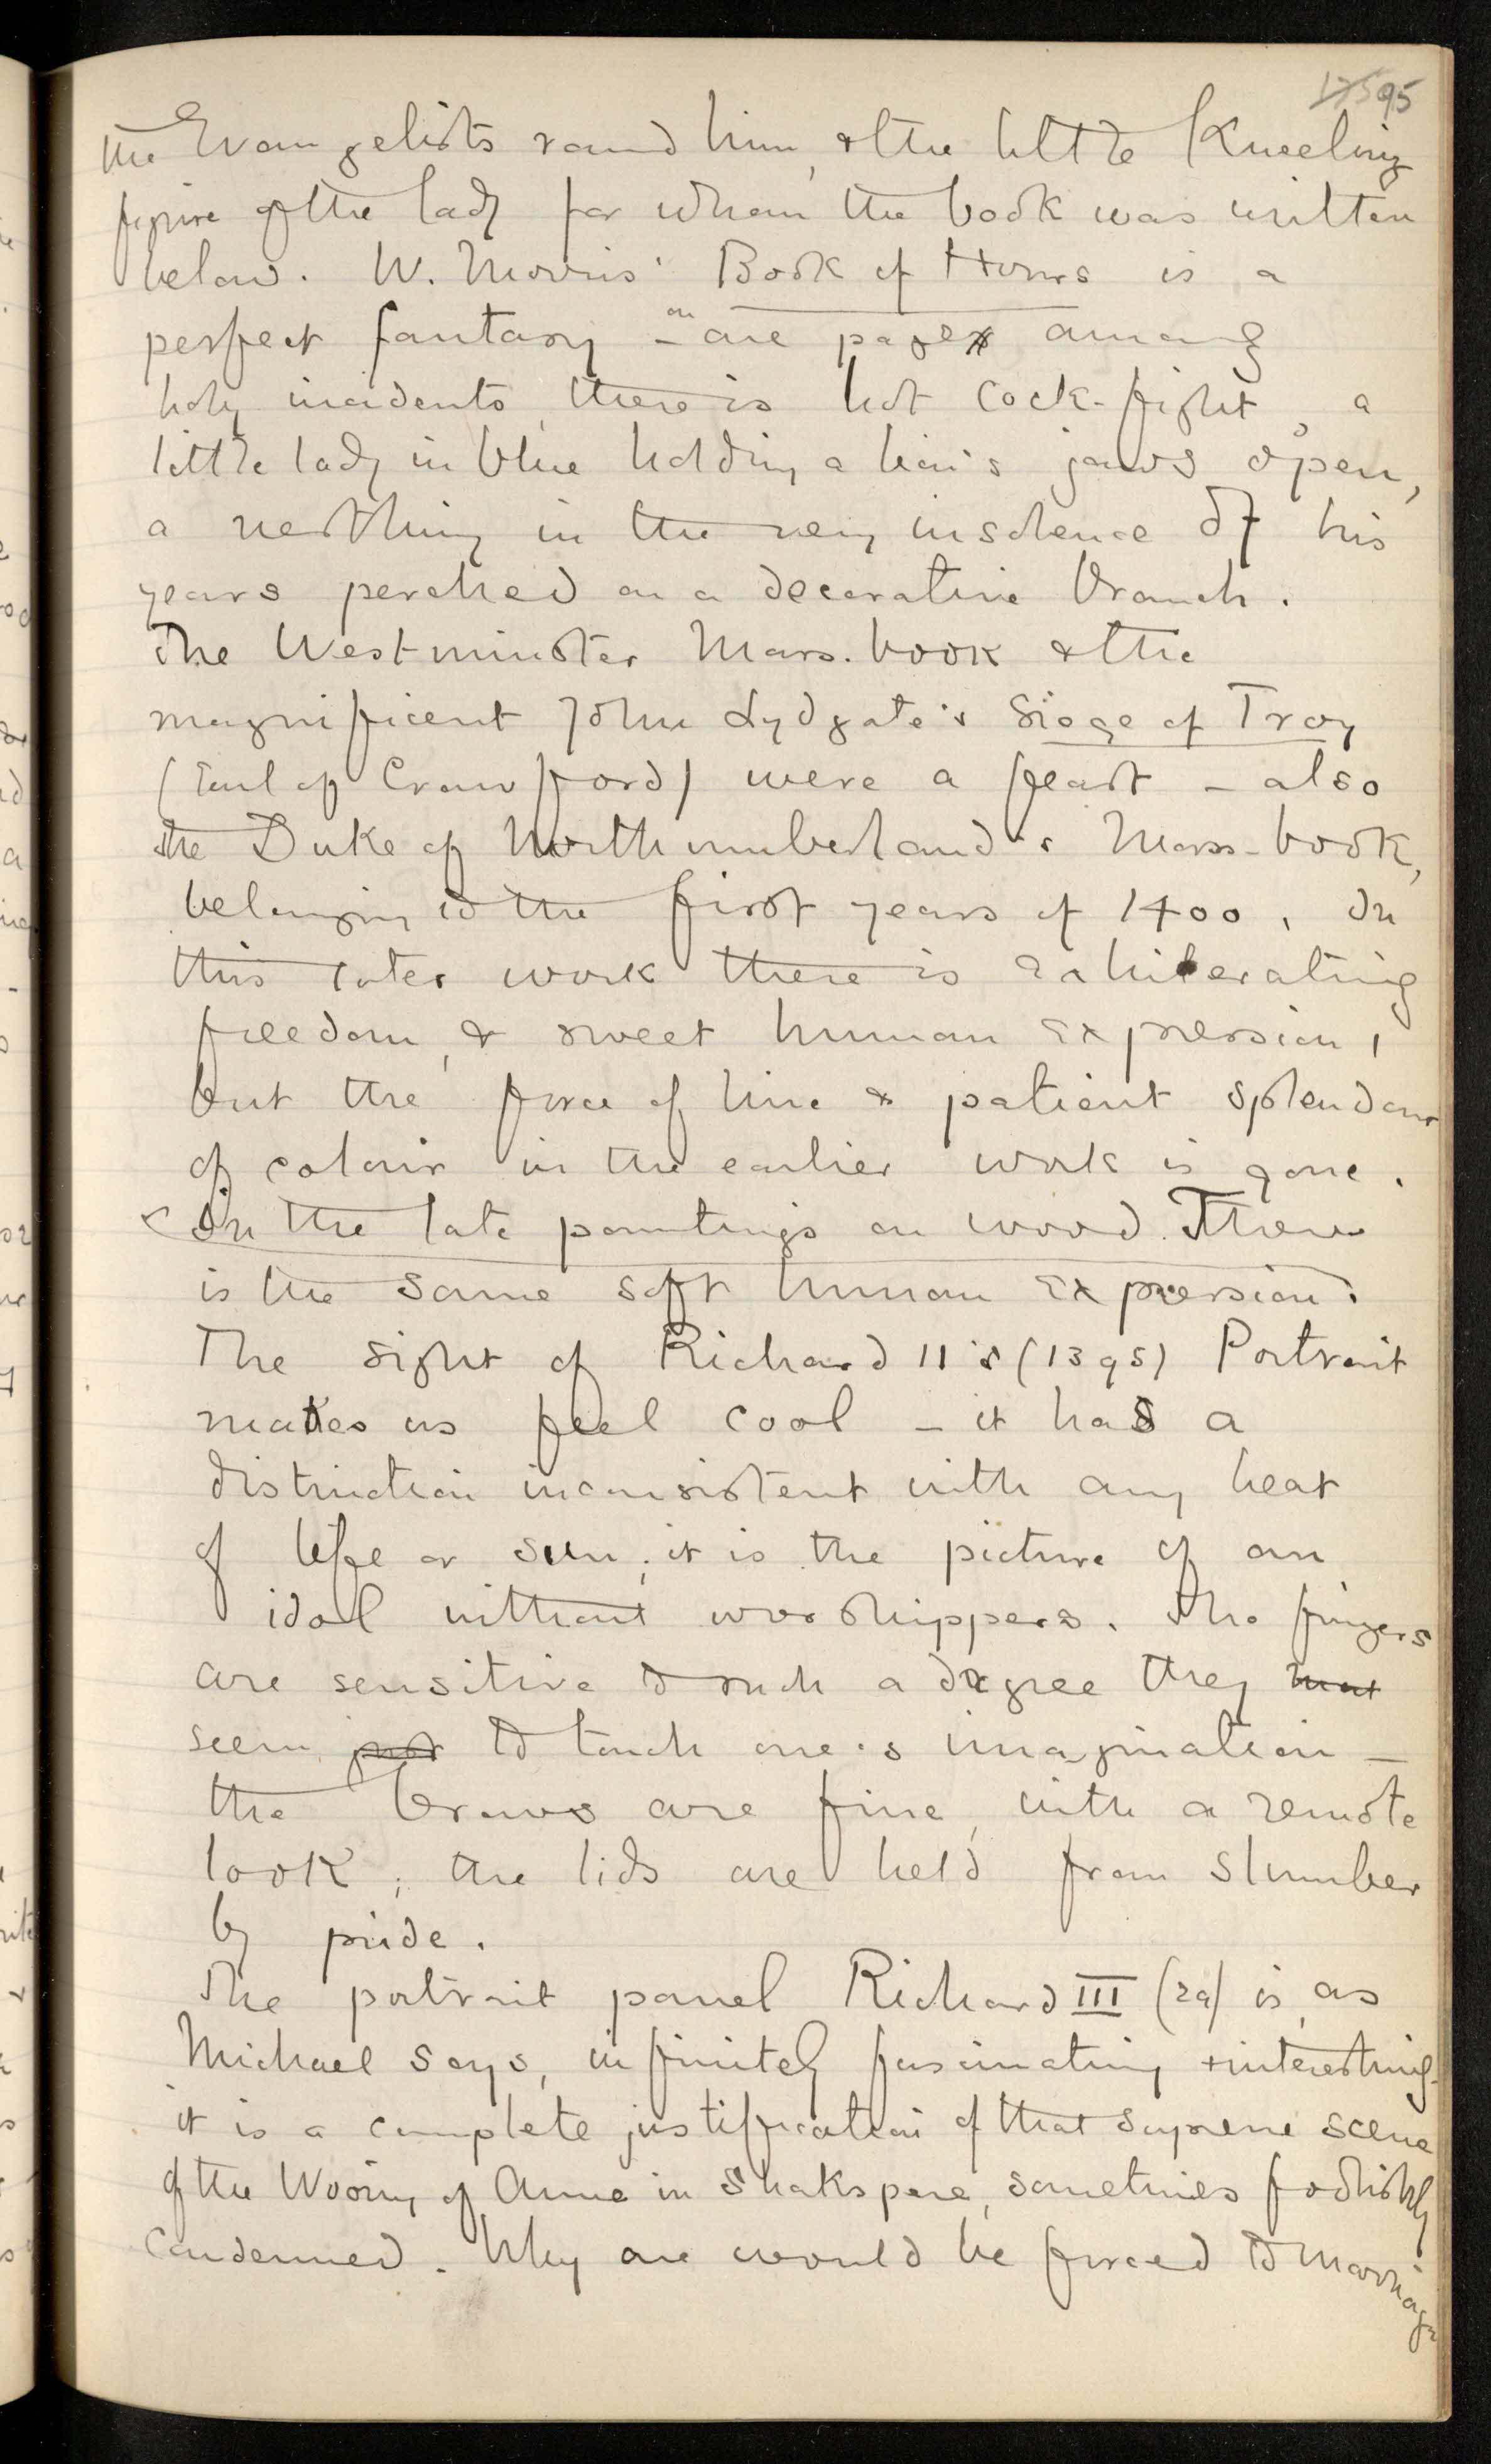 95
the Evangelists round him, & the little kneeling
figure of the lady for whom the book was written
below. W. Morris' Book of Hours is a
perfect fantasy – on one page among
holy incidents, there is hot cock-fight, a
little lady in blue holding a lion's jaws open,
a nestling in the very insolence of his
years perched on a decorative branch.
The Westminster Mass-book & the
magnificent John Lydgate's Siege of Troy
(Earl of Crawford) were a feast – also
the Duke of Northumberland's Mass-book,
belonging to the first years of 1400. In
this later work there is exhilerating
freedom, & sweet human expression,
but the force of line & patient splendour
of colour in the earlier work is gone.
In the late paintings on wood. There
is the same soft human expression.
The sight of Richard II's (1395) Portrait
makes us feel cool – it has a
distinction inconsistent with any heat
of life or sun; it is the picture of an
idol without worshippers. The fingers
are sensitive to such a degree they
seem to touch one's imagination –
the brows are fine, with a remote
look; the lids are held from slumber
by pride.
The portrait panel Richard III (29) is, as
Michael says, infinitely fascinating & interesting–
it is a complete justification of that supreme scene
of the Wooing of Anne in Shakspere, sometimes foolishly
condemned. Why one would be forced to marriage